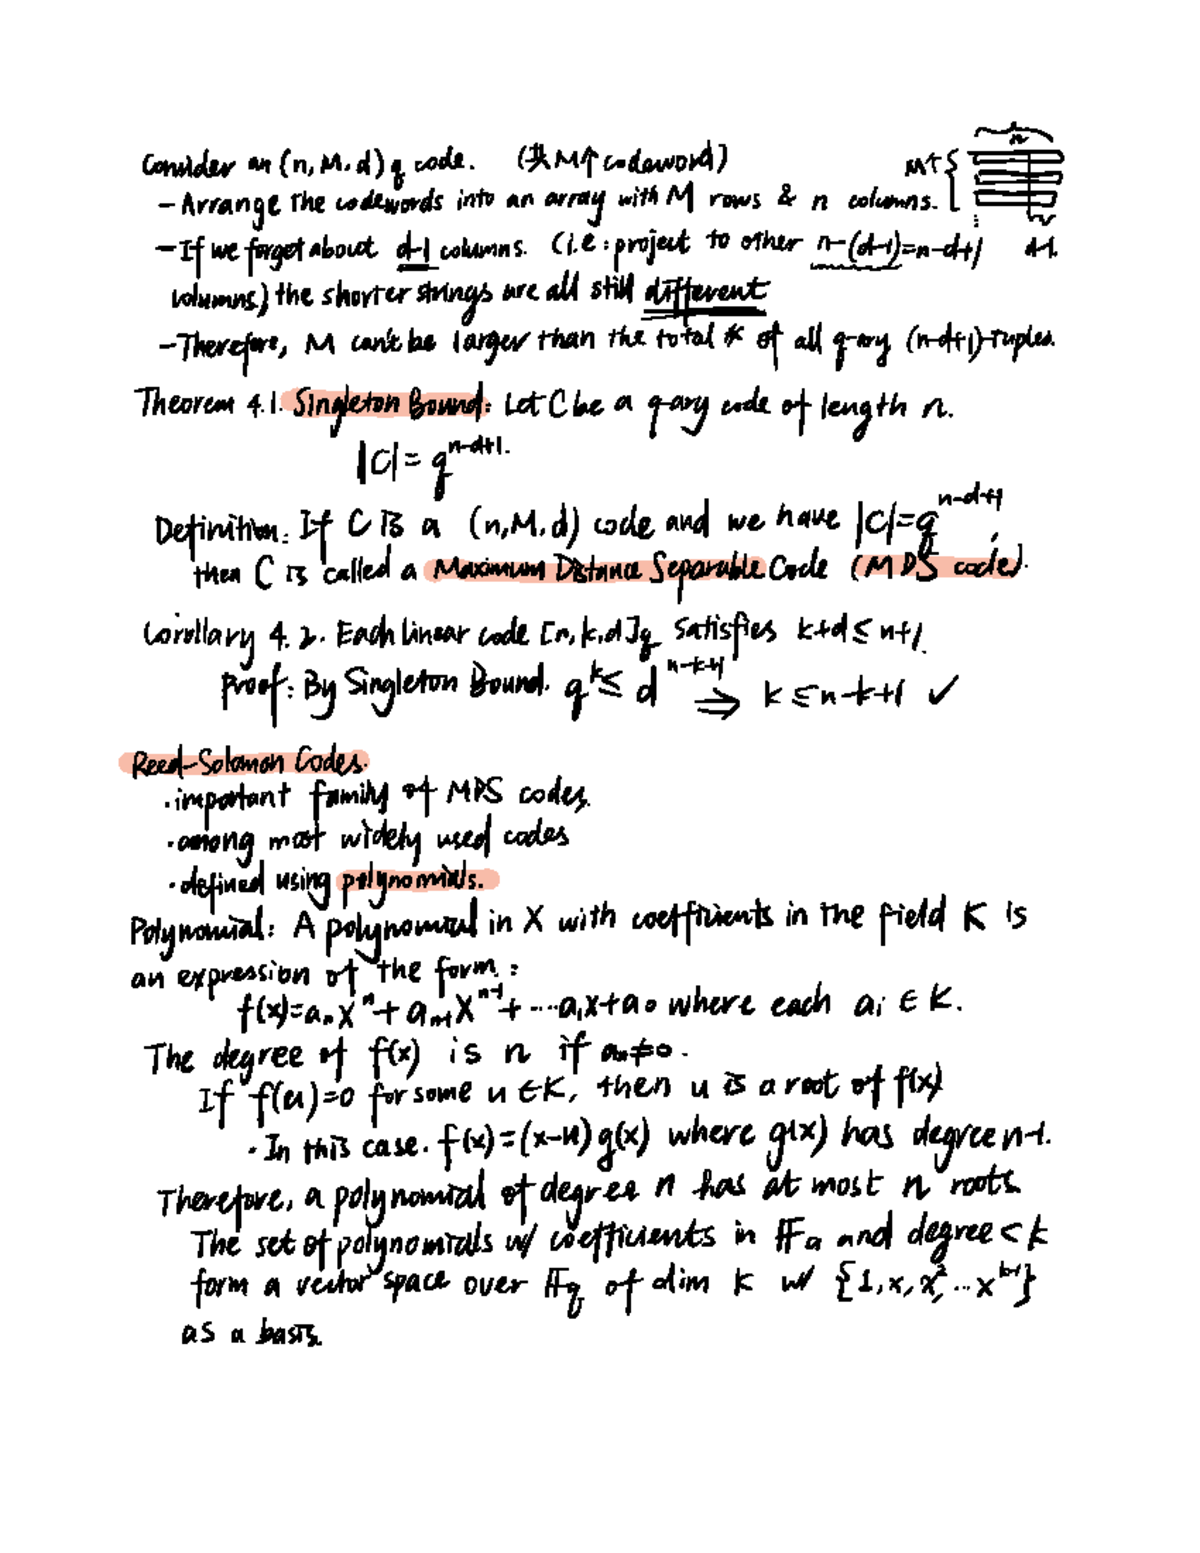 Consider an (n, M, d) q code. (共M个codeword)
n
M个
- Arrange the codewords into an array with M rows & n columns.
- If we forget about d-1 columns. (i.e: project to other n-(d-1)=n-d+1
d-1.
columns) the shorter strings are all still different
- Therefore, M can't be larger than the total # of all q-ary (n-d+1)-tuples.
Theorem 4.1. Singleton Bound: Let C be a q-ary code of length n.
|C| = q^{n-d+1}.
Definition: If C is a (n, M, d) code and we have |C|=q^{n-d+1},
then C is called a Maximum Distance Separable Code (MDS code).
Corollary 4.2. Each linear code [n,k,d]q satisfies k+d≤n+1.
Proof: By Singleton Bound. q^k ≤ d^{n-k+1} ⇒ k ≤ n-k+1 ✓
Reed-Solomon Codes.
· important family of MDS codes.
· among most widely used codes
· defined using polynomials.
Polynomial: A polynomial in X with coefficients in the field K is
an expression of the form:
f(x)=a_n X^n + a_{n-1} X^{n-1} + ···a_1x+a_0 where each a_i ∈ K.
The degree of f(x) is n if a_n≠0.
If f(u)=0 for some u ∈ K, then u is a root of f(x)
· In this case. f(x)=(x-u)g(x) where g(x) has degree n-1.
Therefore, a polynomial of degree n has at most n roots.
The set of polynomials w/ coefficients in F_q and degree < k
form a vector space over F_q of dim k w/ {1, x, x^2, ... x^{k-1}}
as a basis.